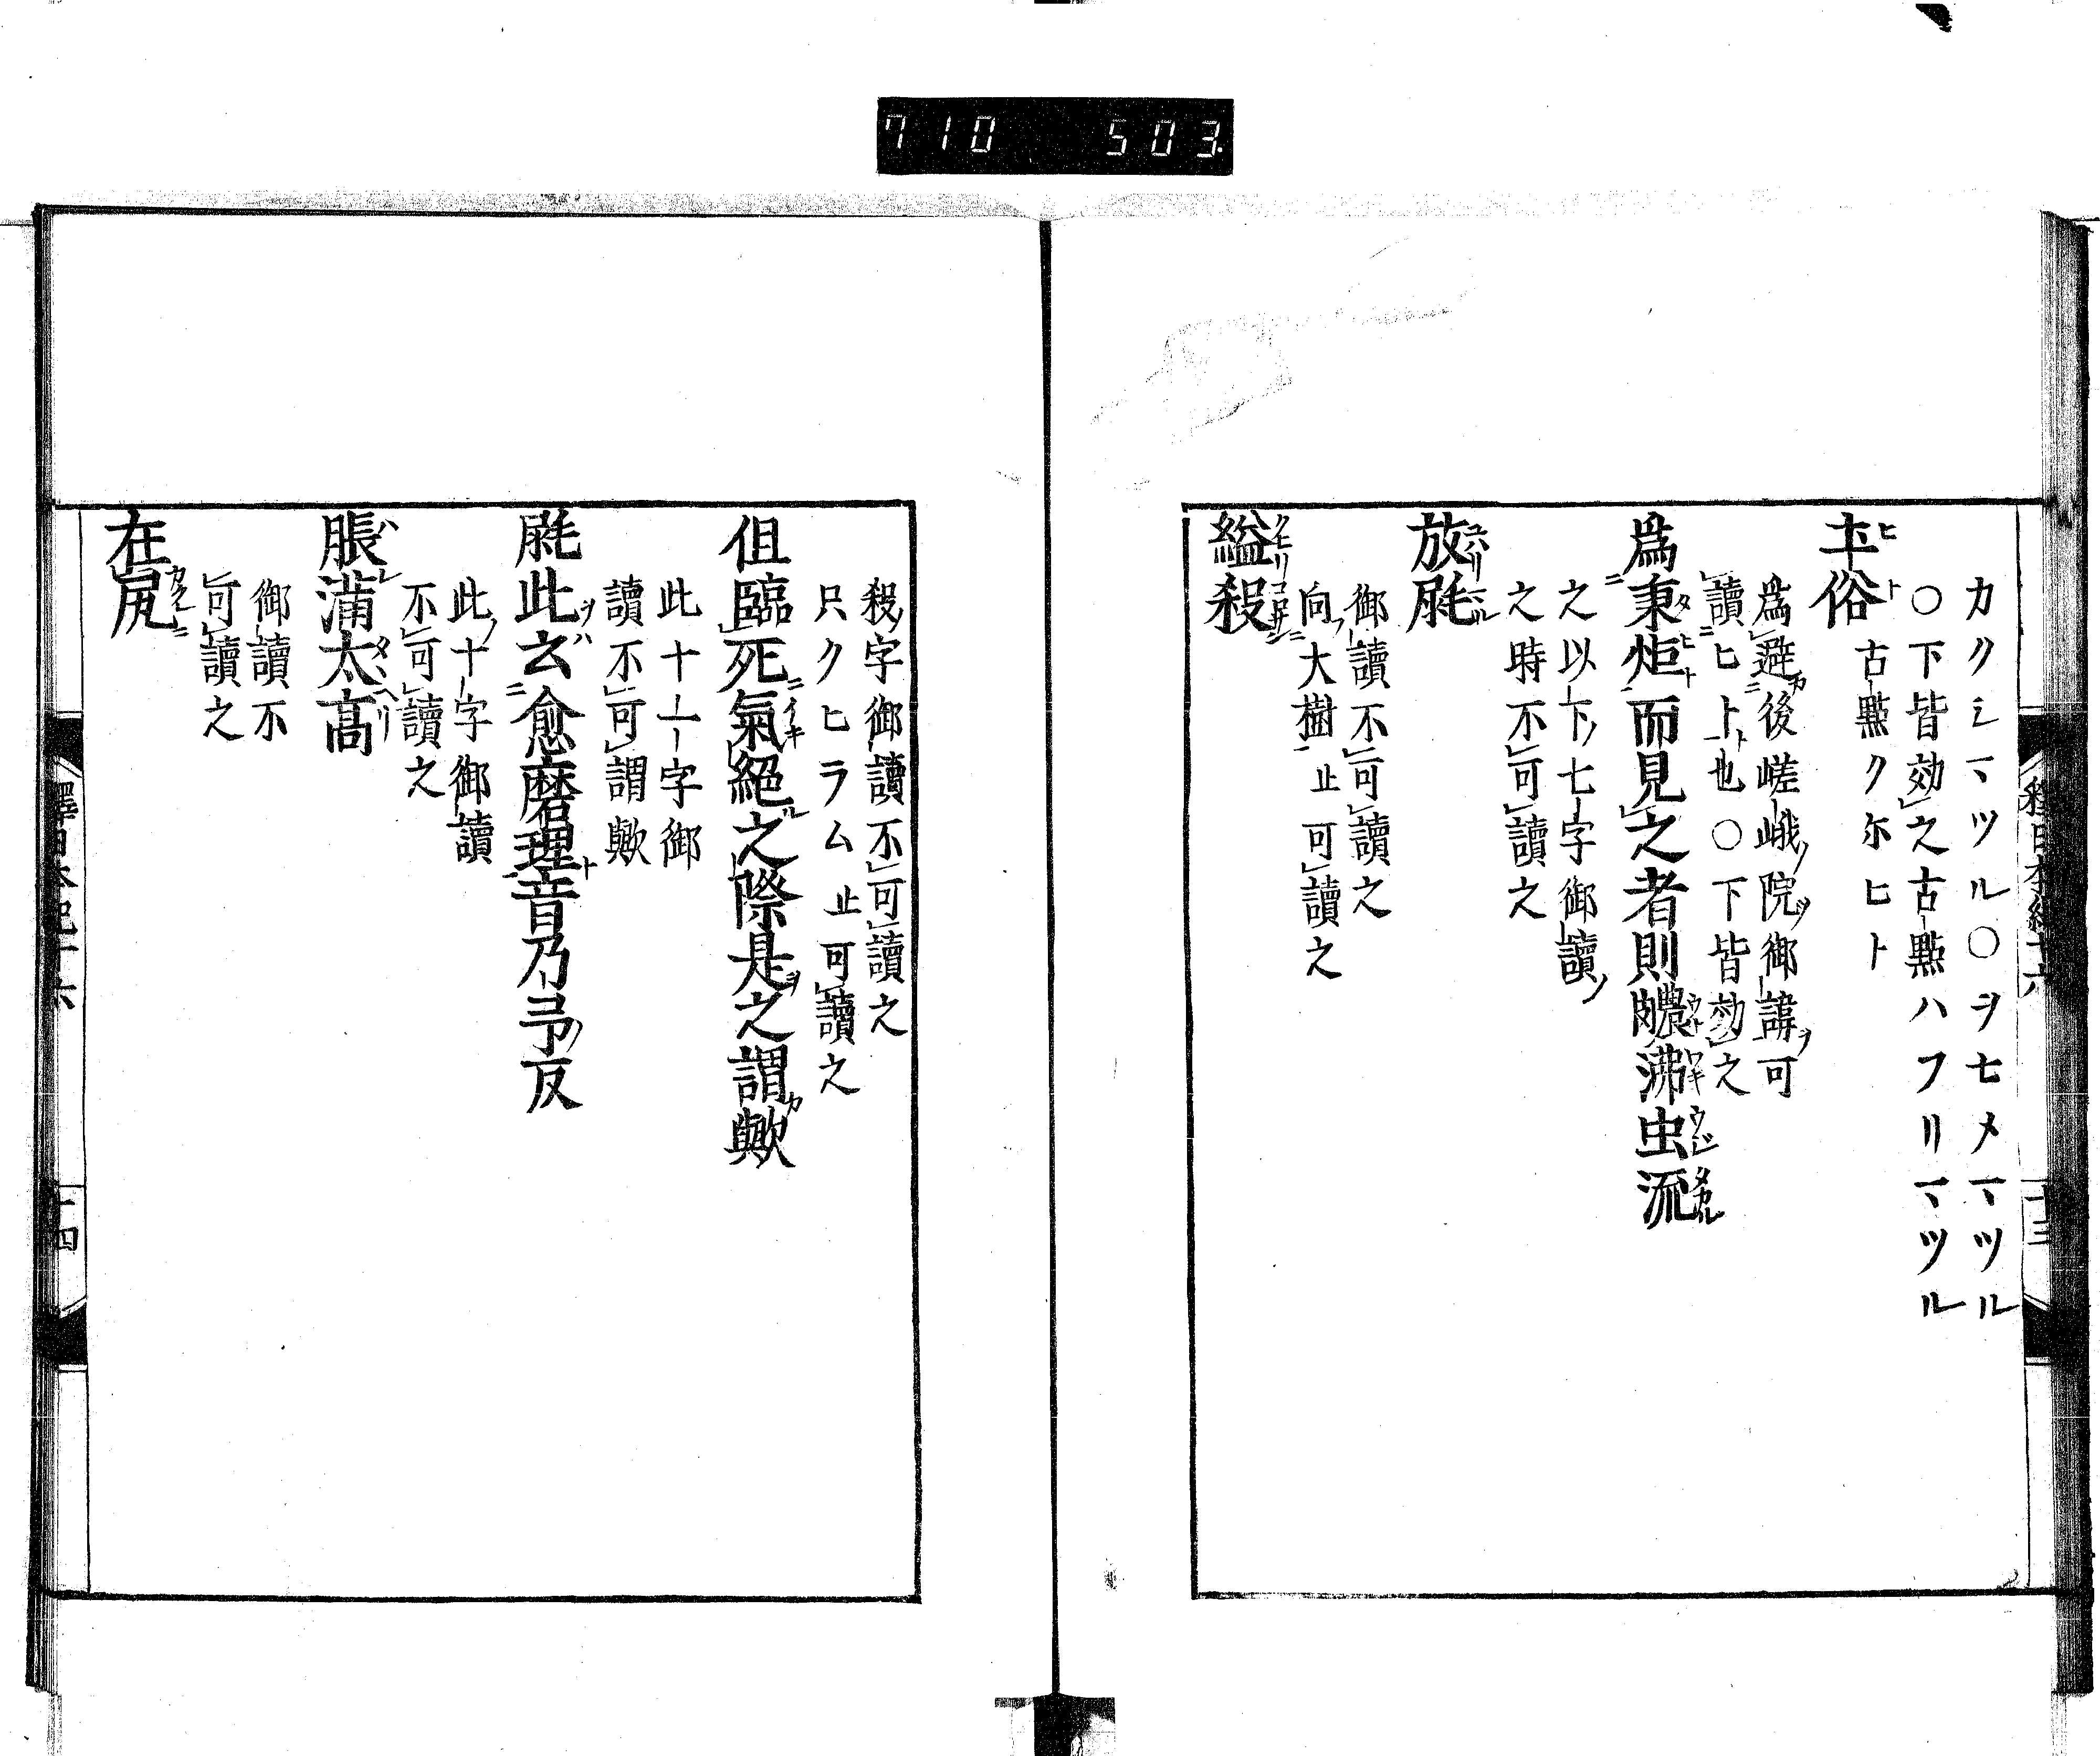 710 503
カクシマツル〇ヲセメマツル
〇下皆効之古點ハフリマツル
土俗
古點クルヒト
爲避後嵯峨院御諱可
讀ヒト也〇下皆効之
爲秉炬而見之者則膿沸虫流
之以下七字御讀
之時不可讀之
放𡱁
御讀不可讀之
向大樹止可讀之
縊殺
殺字御讀不可讀之
只クヒラム止可讀之
但臨死氣絕之際是之謂歟
此十一字御
讀不可謂歟
𡱁此云愈磨理音乃弖反
此十字御讀
不可讀之
脹滿太高
御讀不
可讀之
在尻
釋日本紀十六
十四